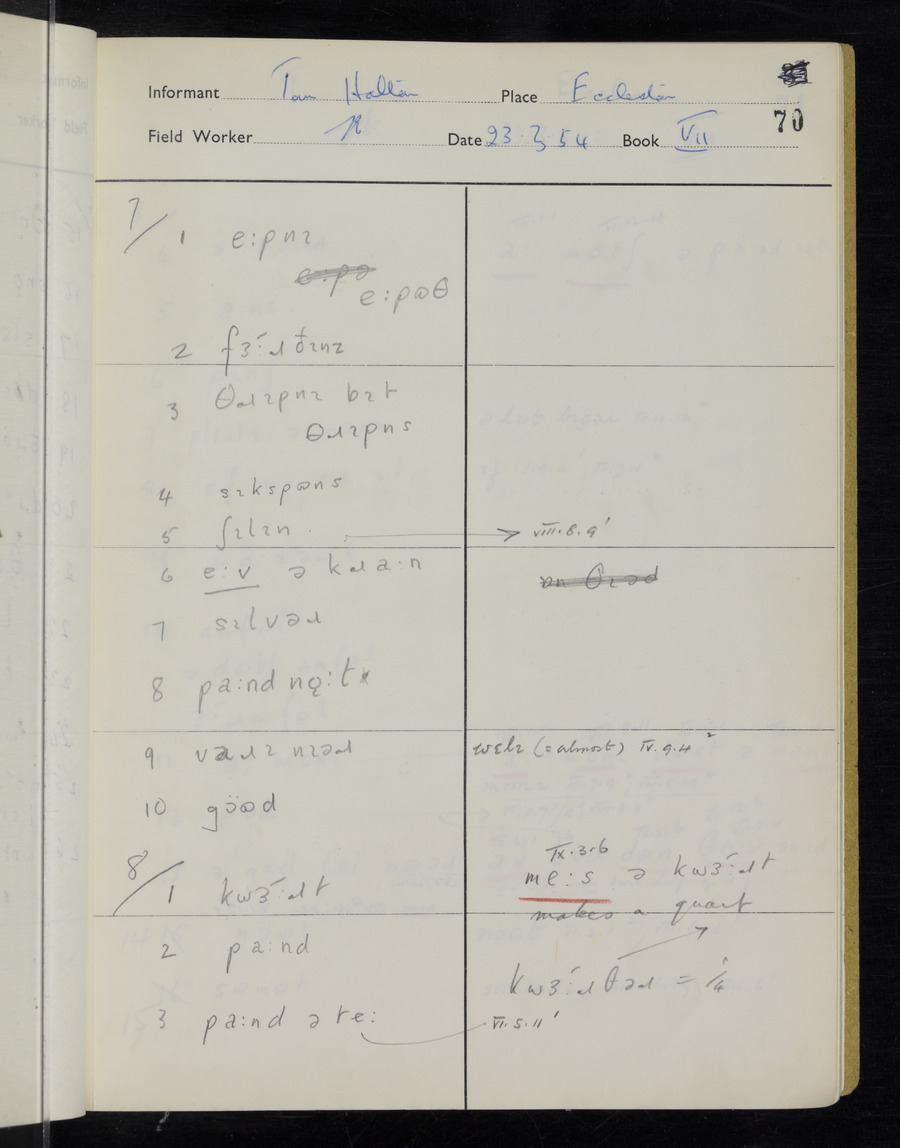 Informant Tom Halton Place Eccleston
Field Worker Date 23.3.54 Book VII 70
7/ 1 e:pnɪ
e:pɷθ
2 fɜ́:ɹðɪnɪ
3 θɹɪpnɪ bɪt
θɹɪpns
4 sɪkspɷns
5 ʃɪlɪn → VIII.8.9'
6 e:v ə kɹa:n
7 sɪlvəɹ
8 pa:nd no̜:t
9 vaɹɪ nɪəɹ wɛlɪ (= almost) IV.9.4²
10 göɷd
8/ 1 kwɜ́:ɹt
IX.3.6
me:s ə kwɜ́:ɹt
makes a quart
2 pa:nd
kwɜ́:ɹtəɹ = ¼
3 pa:nd ə te: VI.5.11'